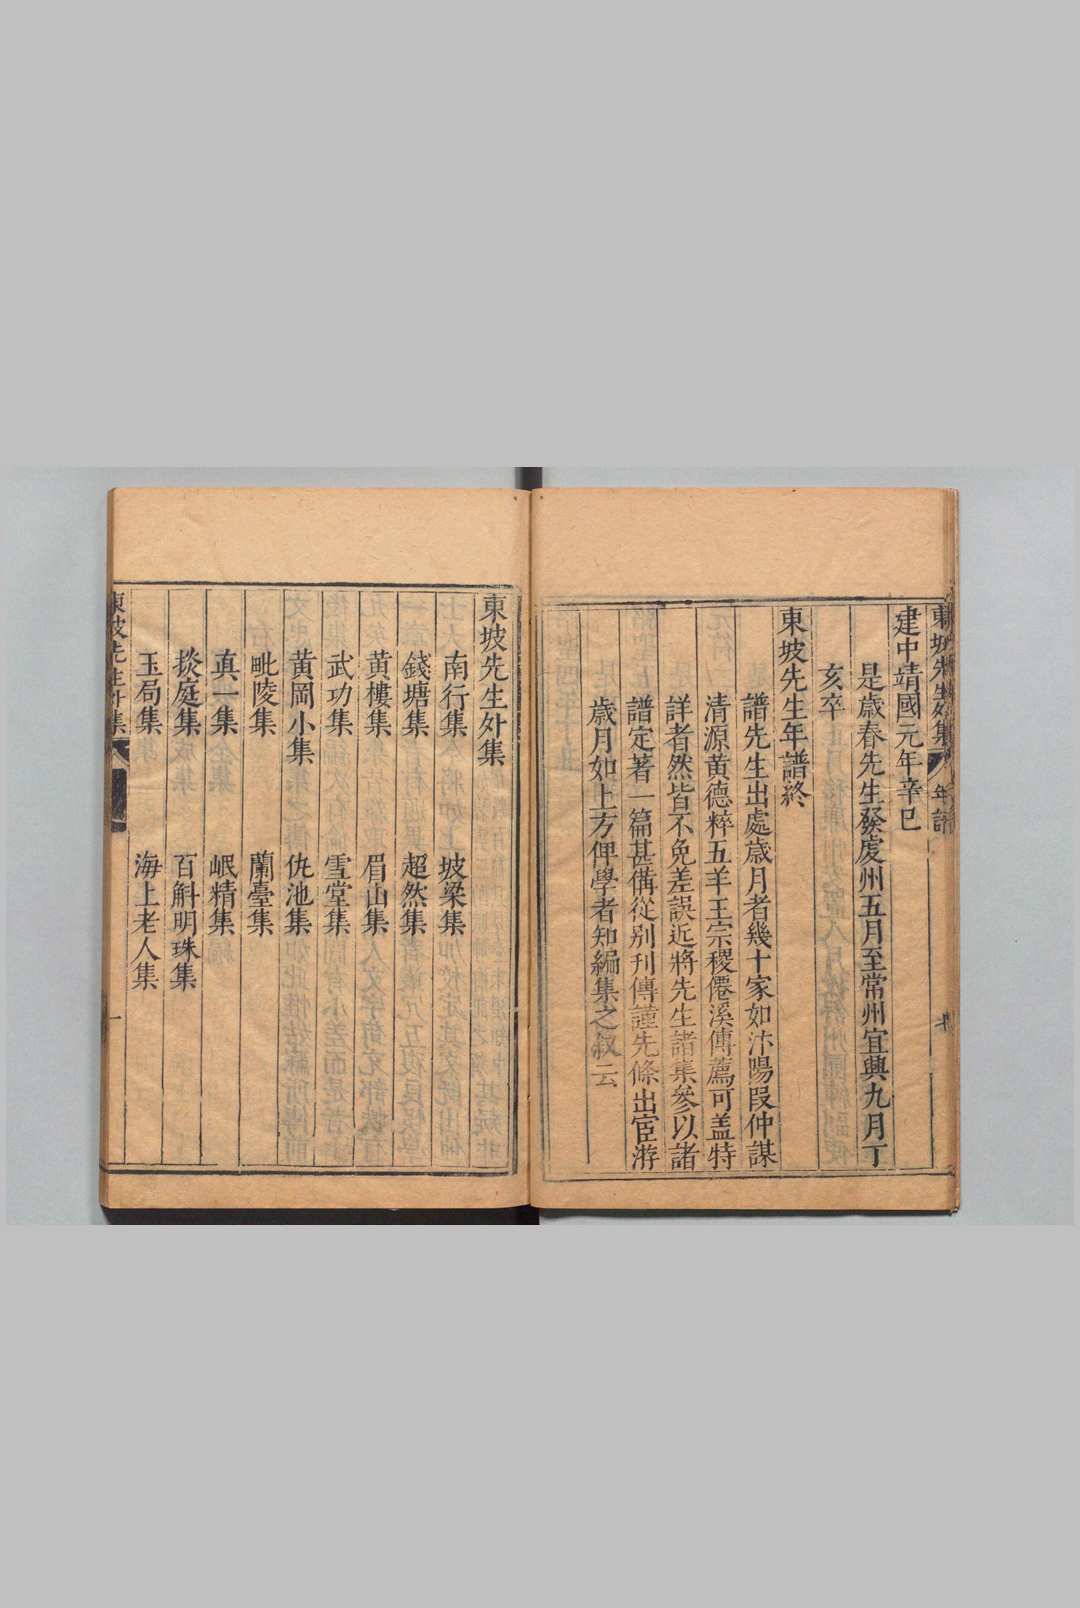 建中靖國元年辛巳
是歳春先生發虔州五月至常州宜興九月丁
亥卒
東坡先生年譜終
譜先生出處歳月者幾十家如汴陽段仲謀
清源黄德粹五羊王宗稷僊溪傅薦可盖特
詳者然皆不免差誤近將先生諸集參以諸
譜定著一篇甚備從别刋傳謹先條出宦游
歳月如上方俾學者知編集之敘云
東坡先生外集
南行集 坡梁集
錢塘集 超然集
黄樓集 眉山集
武功集 雪堂集
黄岡小集 仇池集
毗陵集 蘭臺集
真一集 岷精集
掞庭集 百斛明珠集
玉局集 海上老人集
東坡先生外集 一